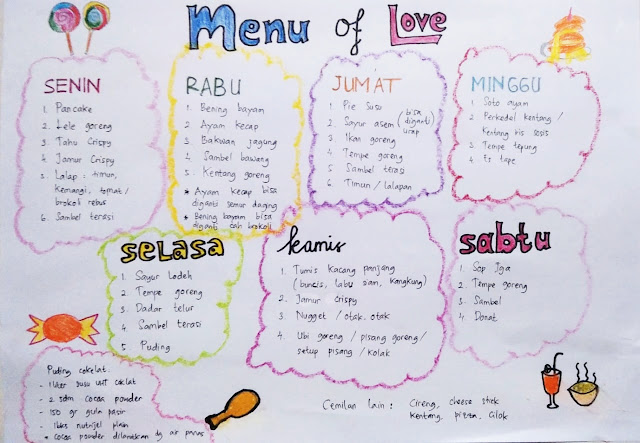 Menu of Love
SENIN
1. Pancake
2. Lele goreng
3. Tahu Crispy
4. Jamur Crispy
5. Lalap : timun,
kemangi, tomat/
brokoli rebus
6. Sambel terasi
RABU
1. Bening bayam
2. Ayam kecap
3. Bakwan jagung
4. Sambel bawang
5. Kentang goreng
* Ayam kecap bisa
diganti semur daging
* Bening bayam bisa
diganti cah brokoli
JUM'AT
1. Pie susu
2. Sayur asem (bisa
diganti
urap)
3. Ikan goreng
4. Tempe goreng
5. Sambel terasi
6. Timun / lalapan
MINGGU
1. Soto ayam
2. Perkedel kentang /
kentang iris sosis
3. Tempe tepung
4. Es tape
SELASA
1. Sayur Lodeh
2. Tempe goreng
3. Dadar telur
4. Sambel terasi
5. Puding
kamis
1. Tumis kacang panjang
(buncis, labu siam, kangkung)
2. Jamur crispy
3. Nugget / otak-otak
4. Ubi goreng / pisang goreng /
setup pisang / kolak
sabtu
1. Sop Iga
2. Tempe goreng
3. Sambel
4. Donat
Puding cokelat.
- 1 liter susu UHT coklat
- 2 sdm cocoa powder
- 150 gr gula pasir
- 1 bks nutrijel plain
* cocoa powder dilarutkan dg air panas
Cemilan lain : Cireng, cheese stick
kentang, pizza, cilok